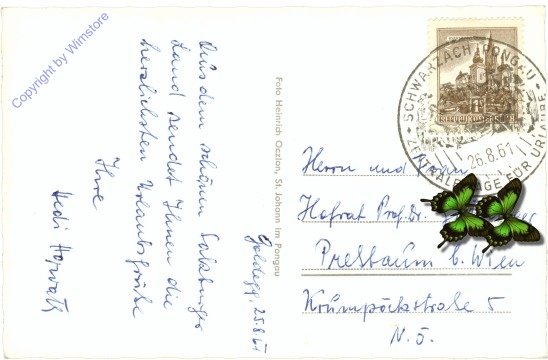 Copyright by Wimstore
Aus dem schönen Salzburger
Land sendet Ihnen die
herzlichsten Urlaubsgrüße
Ihre
Hedi Horvath
Goldegg, 25.8.61
Foto Heinrich Oczlon, St. Johann im Pongau
SCHWARZACH PONGAU
26.8.61
Herrn und
Hofrat Prof. Dr.
Pressbaum b. Wien
Krumpöckstraße 5
N.Ö.